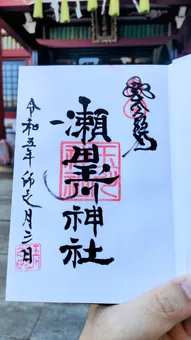 瀬田玉川神社
令和五年卯之月三日